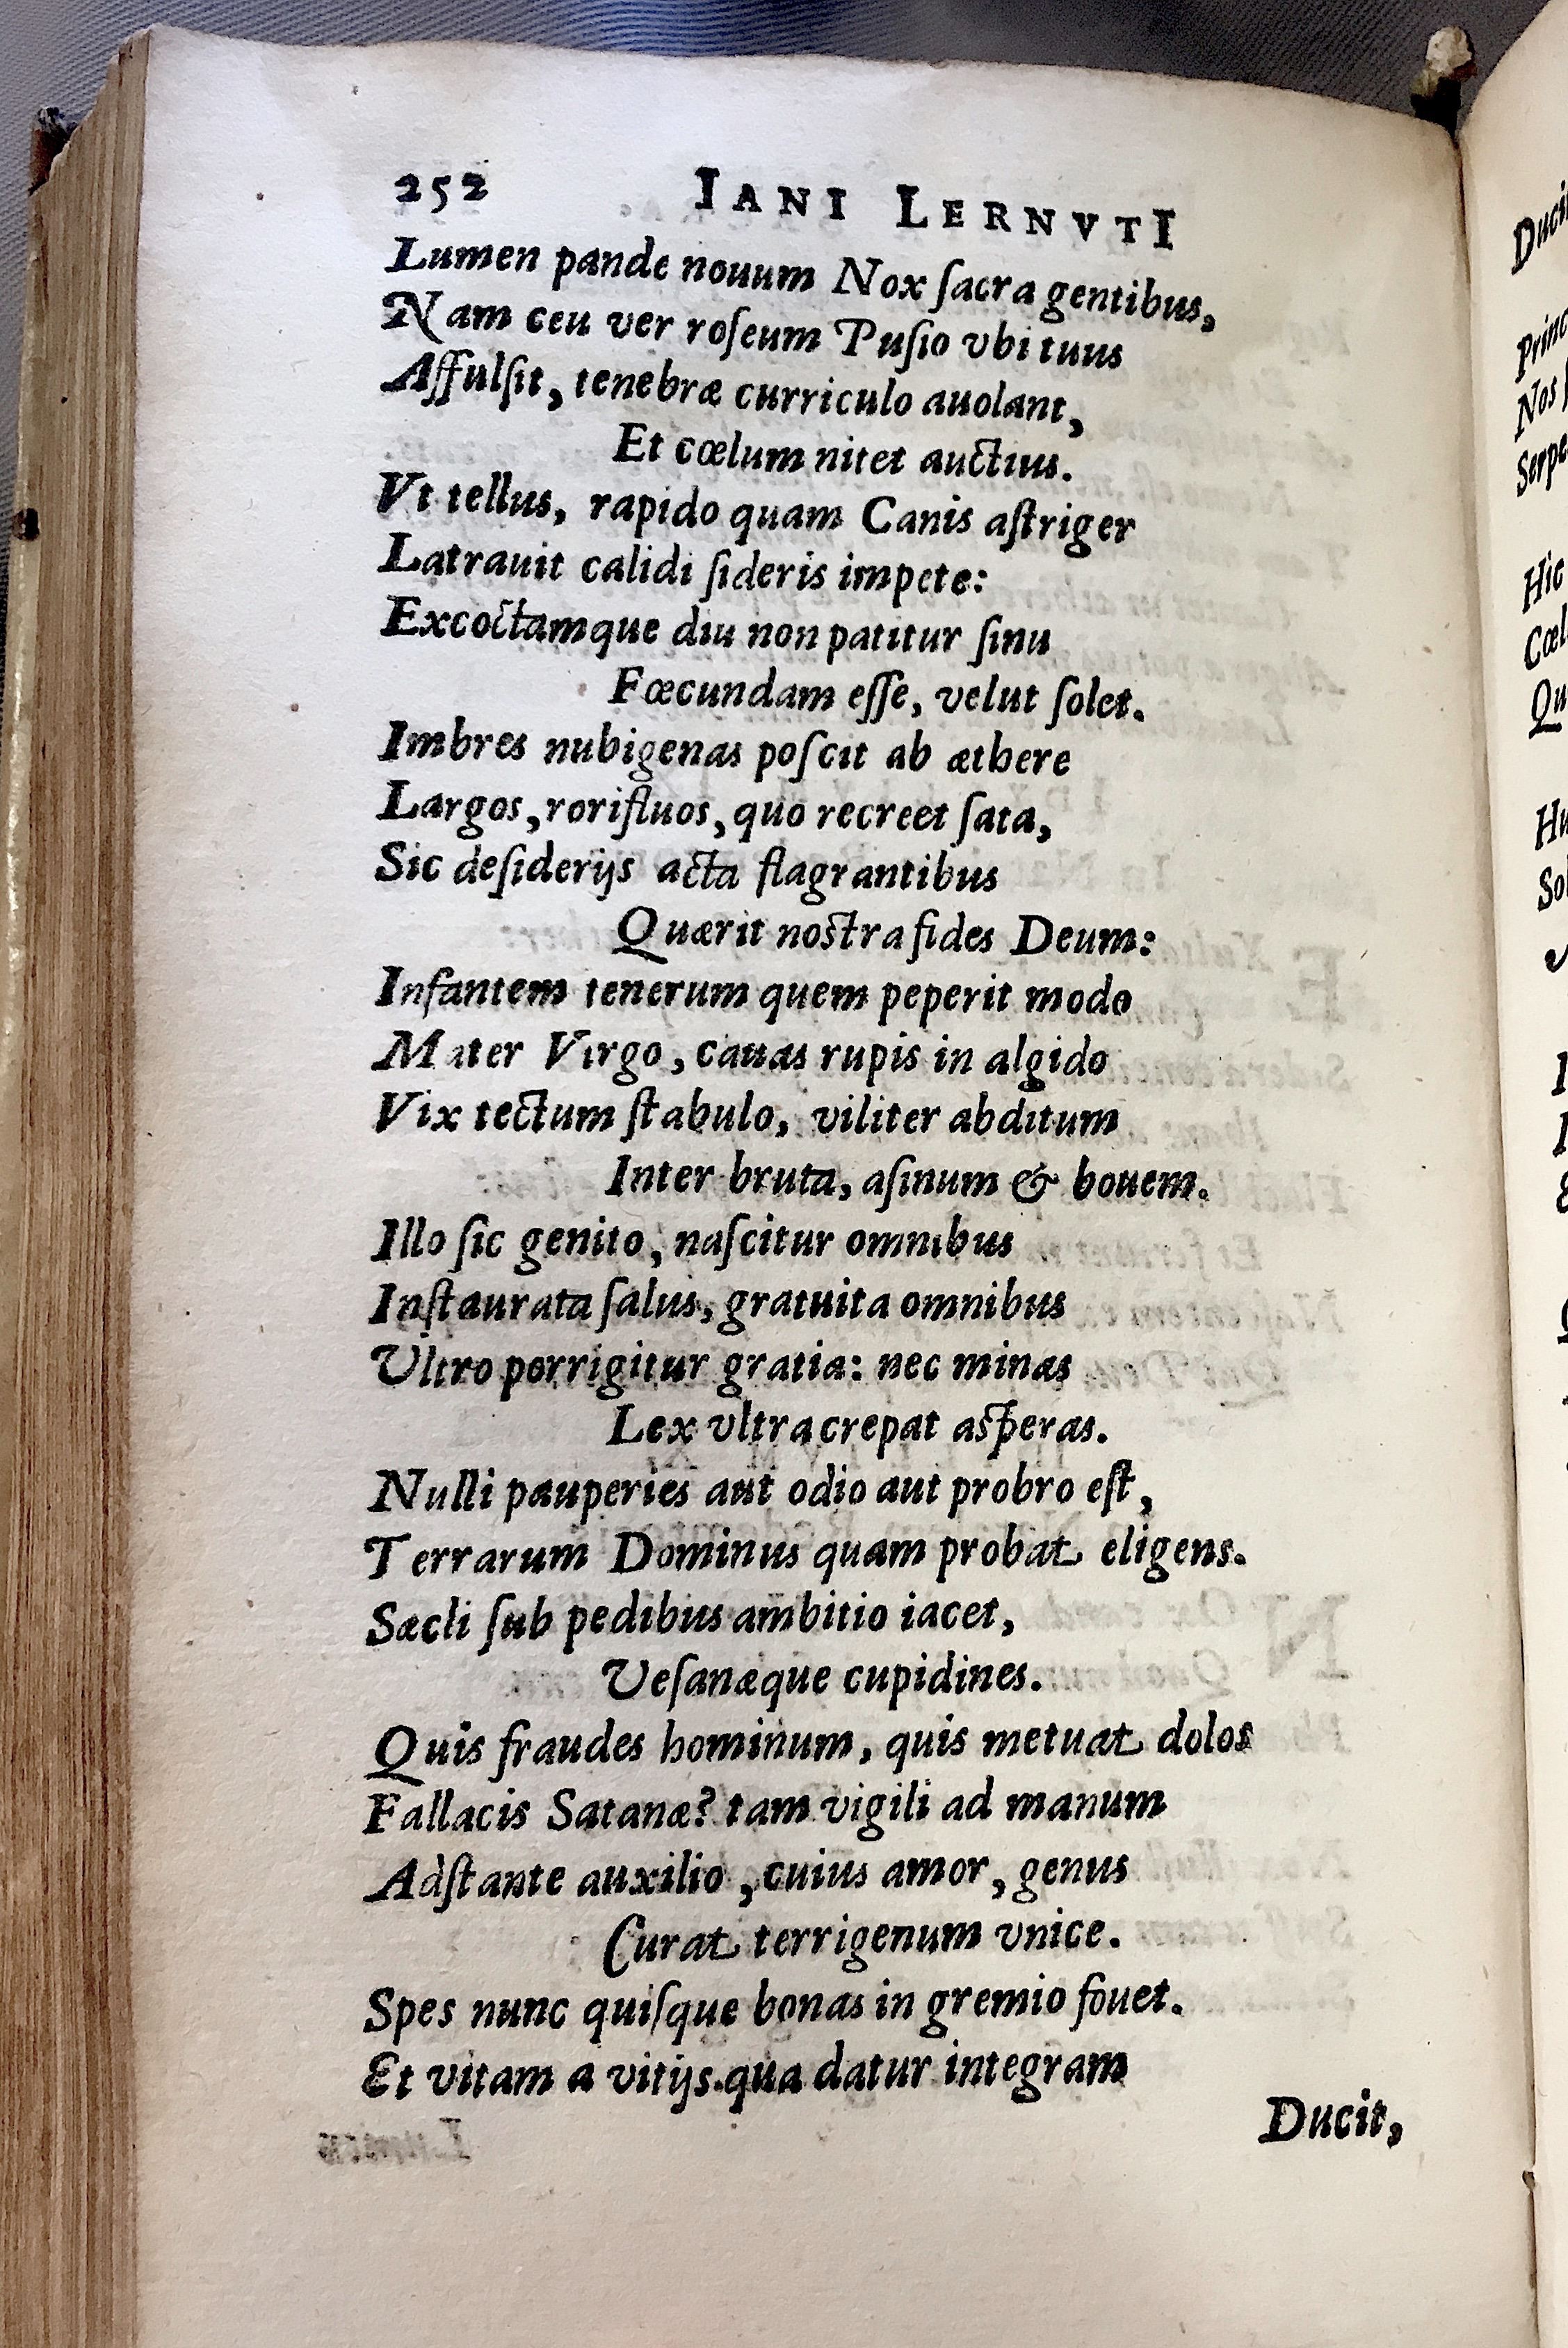 252 IANI LERNVTI
Lumen pande nouum Nox ſacra gentibus,
Nam ceu ver roſeum Puſio vbi tuus
Affulſit, tenebræ curriculo auolant,
Et cœlum nitet auctius.
Vt tellus, rapido quam Canis aſtriger
Latrauit calidi ſideris impete:
Excoctamque diu non patitur ſinu
Fœcundam eſſe, velut ſolet.
Imbres nubigenas poſcit ab æthere
Largos, rorifluos, quo recreet ſata,
Sic deſiderijs acta flagrantibus
Quærit noſtra fides Deum:
Infantem tenerum quem peperit modo
Mater Virgo, cauas rupis in algido
Vix tectum ſtabulo, viliter abditum
Inter bruta, aſinum & bouem.
Illo ſic genito, naſcitur omnibus
Inſtaurata ſalus, gratuita omnibus
Vltro porrigitur gratia: nec minas
Lex vltra crepat aſperas.
Nulli pauperies aut odio aut probro eſt,
Terrarum Dominus quam probat eligens.
Sæcli ſub pedibus ambitio iacet,
Veſanæque cupidines.
Quis fraudes hominum, quis metuat dolos
Fallacis Satanæ? tam vigili ad manum
Adſtante auxilio, cuius amor, genus
Curat terrigenum vnice.
Spes nunc quiſque bonas in gremio fouet.
Et vitam a vitijs. qua datur integram
Ducit,
Hic